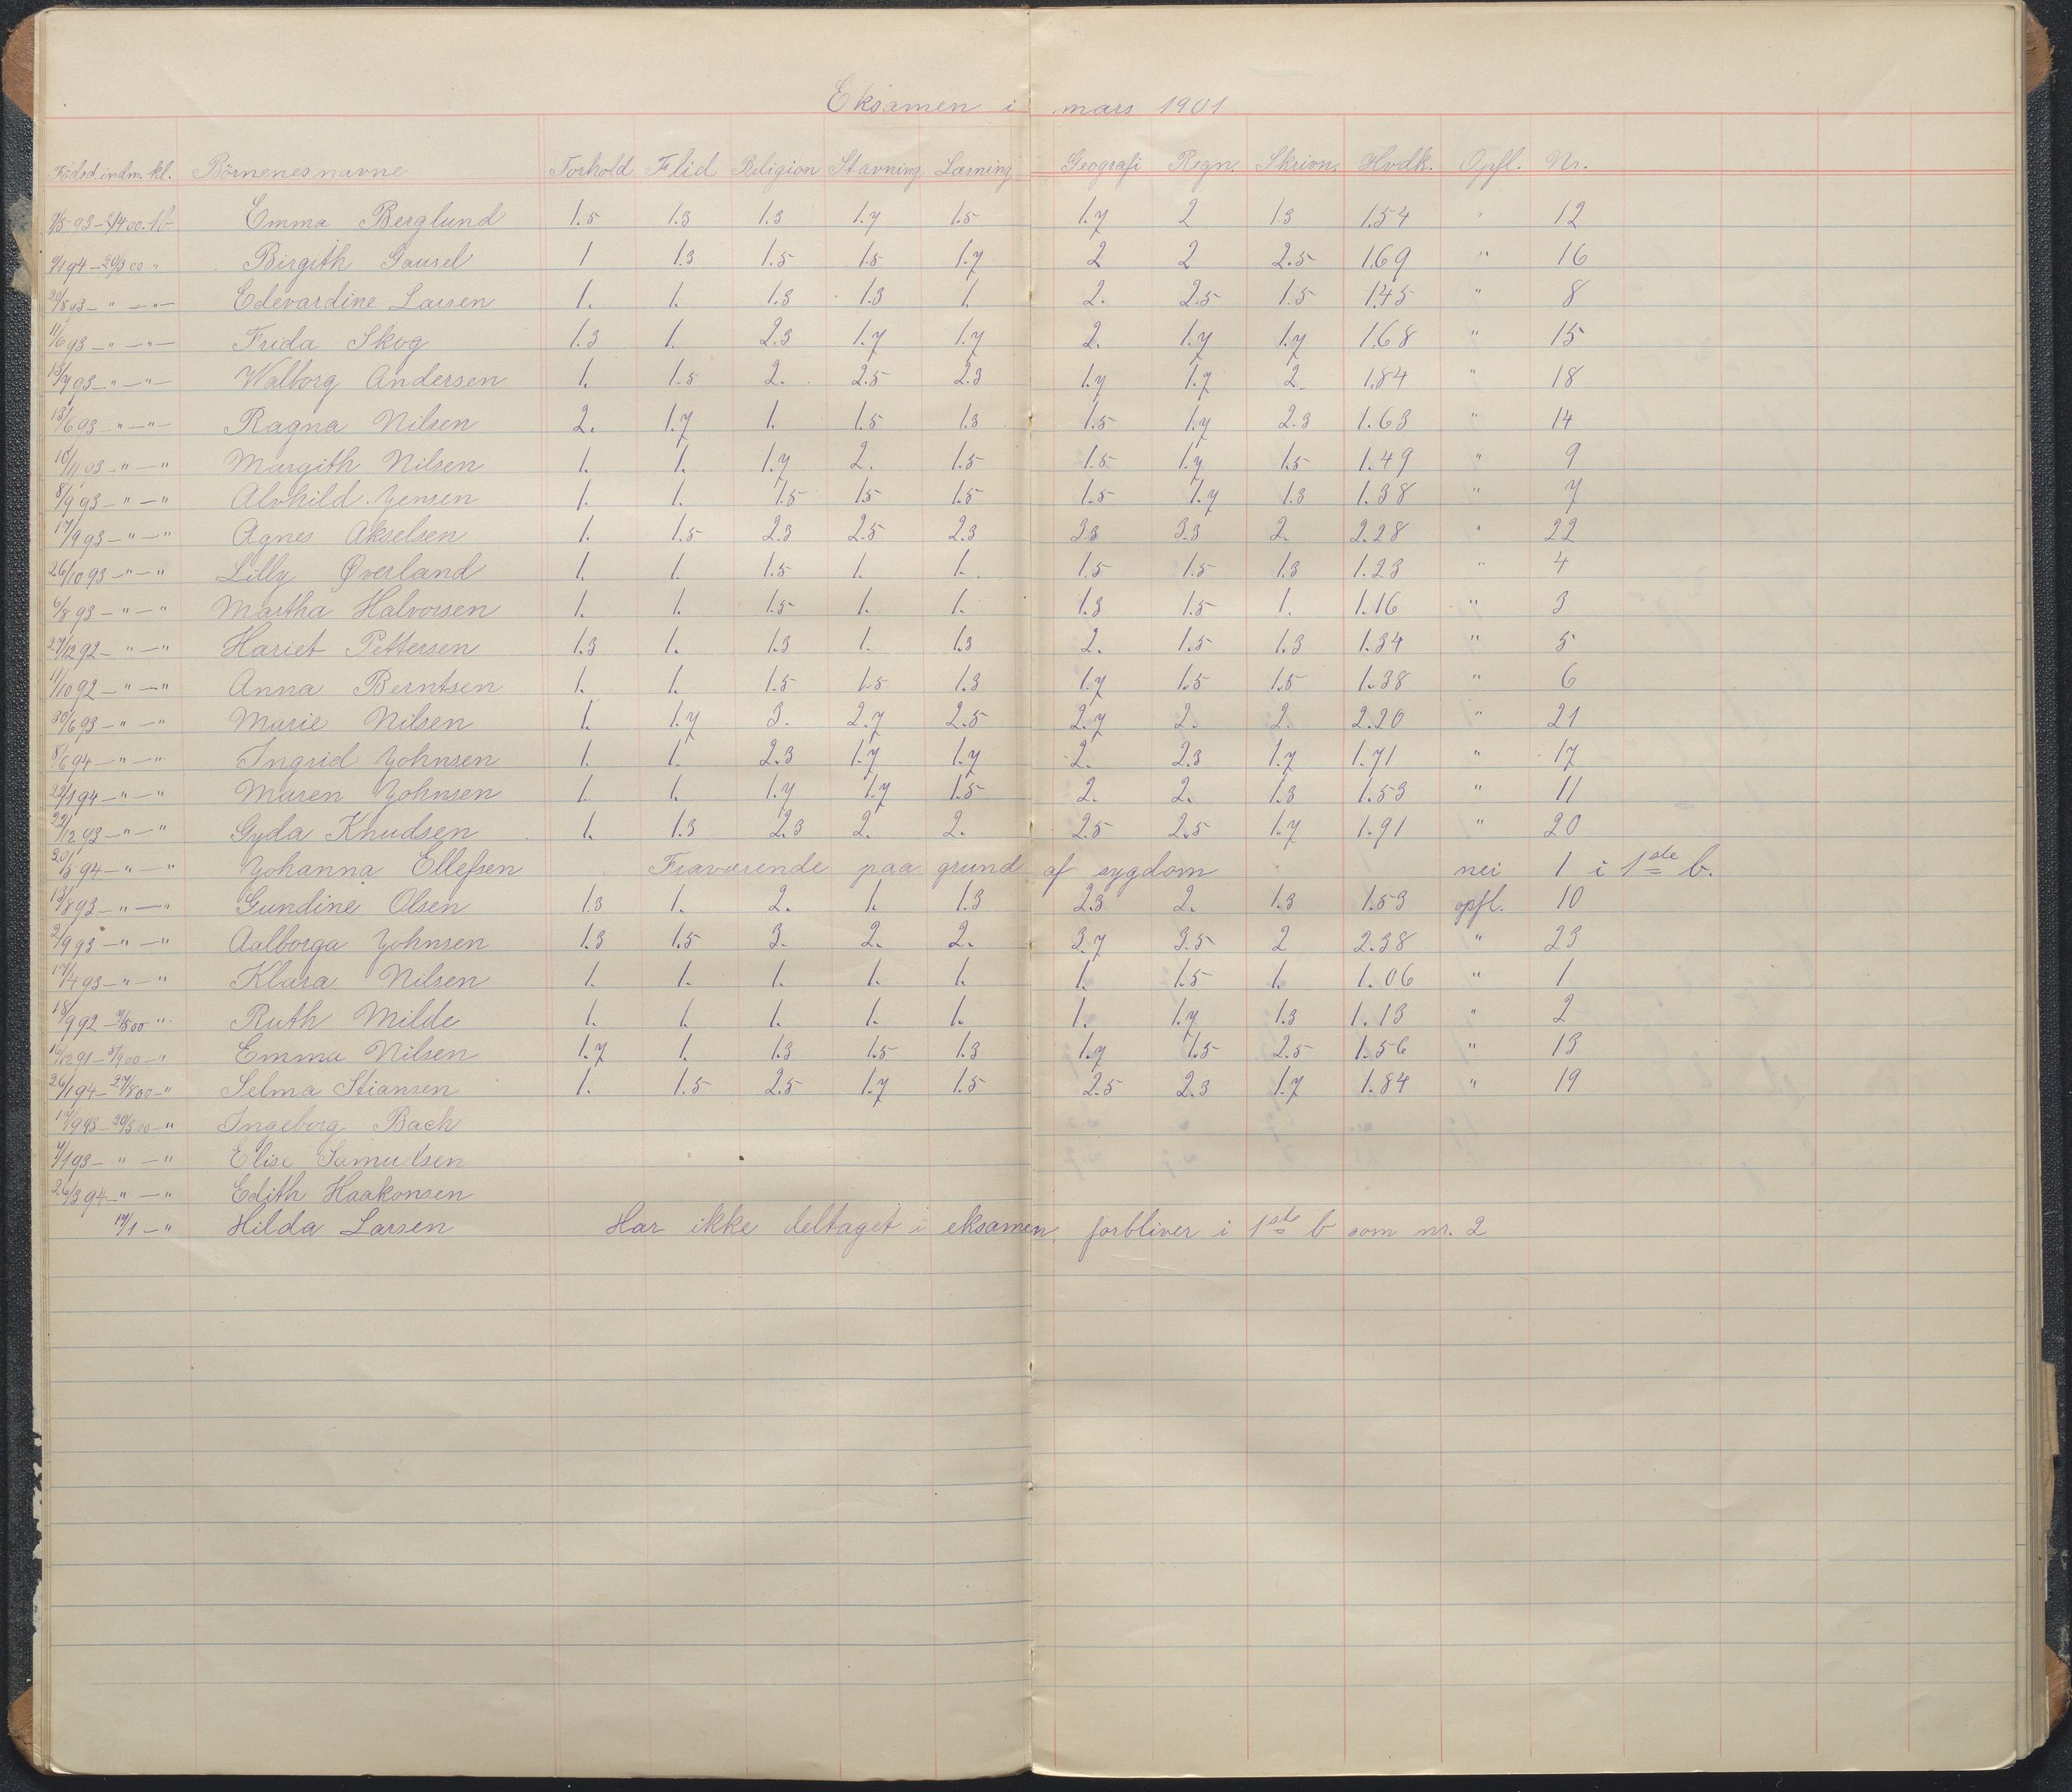 Eksamen i mars 1901
Födsd. indm. kl. Börnenes navne Forhold Flid Religion Stavning Læsning Geografi Regn. Skrivn. Hvdk. Opfl. Nr.
Emma Berglund 1.5 1.3 1.3 1.7 1.5 1.7 2 1.3 1.54 " 12
9/1 94 - 20/3 00 " Birgith Gaurel 1 1.3 1.5 1.5 1.7 2 2 2.5 1.69 " 16
29/8 93 - " - " - Edevardine Larsen 1. 1. 1.3 1.3 1. 2. 2.5 1.5 1.45 " 8
11/6 93 - " - " - Frida Skog 1.3 1. 2.3 1.7 1.7 2. 1.7 1.7 1.68 " 15
15/7 93 - " - " - Walborg Andersen 1. 1.5 2. 2.5 2.3 1.7 1.7 2. 1.84 " 18
13/6 93 - " - " - Ragna Nilsen 2. 1.7 1. 1.5 1.3 1.5 1.7 2.3 1.63 " 14
10/11 93 - " - " Margith Nilsen 1. 1. 1.7 2. 1.5 1.5 1.7 1.5 1.49 " 9
8/9 93 - " - " Alvhild Jensen 1. 1. 1.5 1.5 1.5 1.5 1.7 1.3 1.38 " 7
17/9 93 - " - " Agnes Akselsen 1. 1.5 2.3 2.5 2.3 3.3 3.3 2. 2.28 " 22
26/10 93 - " - " Lilly Øverland 1. 1. 1.5 1. 1. 1.5 1.5 1.3 1.23 " 4
6/8 93 - " - " Martha Halvorsen 1. 1. 1.5 1. 1. 1.3 1.5 1. 1.16 " 3
27/12 92 - " - " Hariet Pettersen 1.3 1. 1.3 1. 1.3 2. 1.5 1.3 1.34 " 5
11/10 92 - " - " Anna Berntsen 1. 1. 1.5 1.5 1.3 1.7 1.5 1.5 1.38 " 6
30/6 93 - " - " Marie Nilsen 1. 1.7 3. 2.7 2.5 2.7 2. 2. 2.20 " 21
8/6 94 - " - " Ingrid Johnsen 1. 1. 2.3 1.7 1.7 2. 2.3 1.7 1.71 " 17
22/1 94 - " - " Maren Johnsen 1. 1. 1.7 1.7 1.5 2. 2. 1.3 1.53 " 11
22/12 93 - " - " Gyda Knudsen 1. 1.3 2.3 2. 2. 2.5 2.5 1.7 1.91 " 20
20/5 94 - " - " Johanna Ellefsen Fraværende paa grund af sygdom nei 1 i 1ste b.
13/8 93 - " - " Gundine Olsen 1.3 1. 2. 1. 1.3 2.3 2. 1.3 1.53 opfl. 10
2/9 93 - " - " Aalborga Johnsen 1.3 1.5 3. 2. 2. 3.7 3.5 2 2.38 " 23
17/4 93 - " - " Klara Nilsen 1. 1. 1. 1. 1. 1. 1.5 1. 1.06 " 1
18/9 92 - 7/5 00 " Ruth Milde 1. 1. 1. 1. 1. 1. 1.7 1.3 1.13 " 2
16/12 91 - 5/9 00 - " Emma Nilsen 1.7 1. 1.3 1.5 1.3 1.7 1.5 2.5 1.56 " 13
26/1 94 - 27/8 00 - " Selma Stiansen 1. 1.5 2.5 1.7 1.5 2.5 2.3 1.7 1.84 " 19
17/9 93 - 20/3 00 - " Ingeborg Bach
7/1 93 - " - " Elise Samuelsen
26/3 94 - " - " Edith Haakonsen
17/1 - " Hilda Larsen Har ikke deltaget i eksamen, forbliver i 1ste b som nr. 2